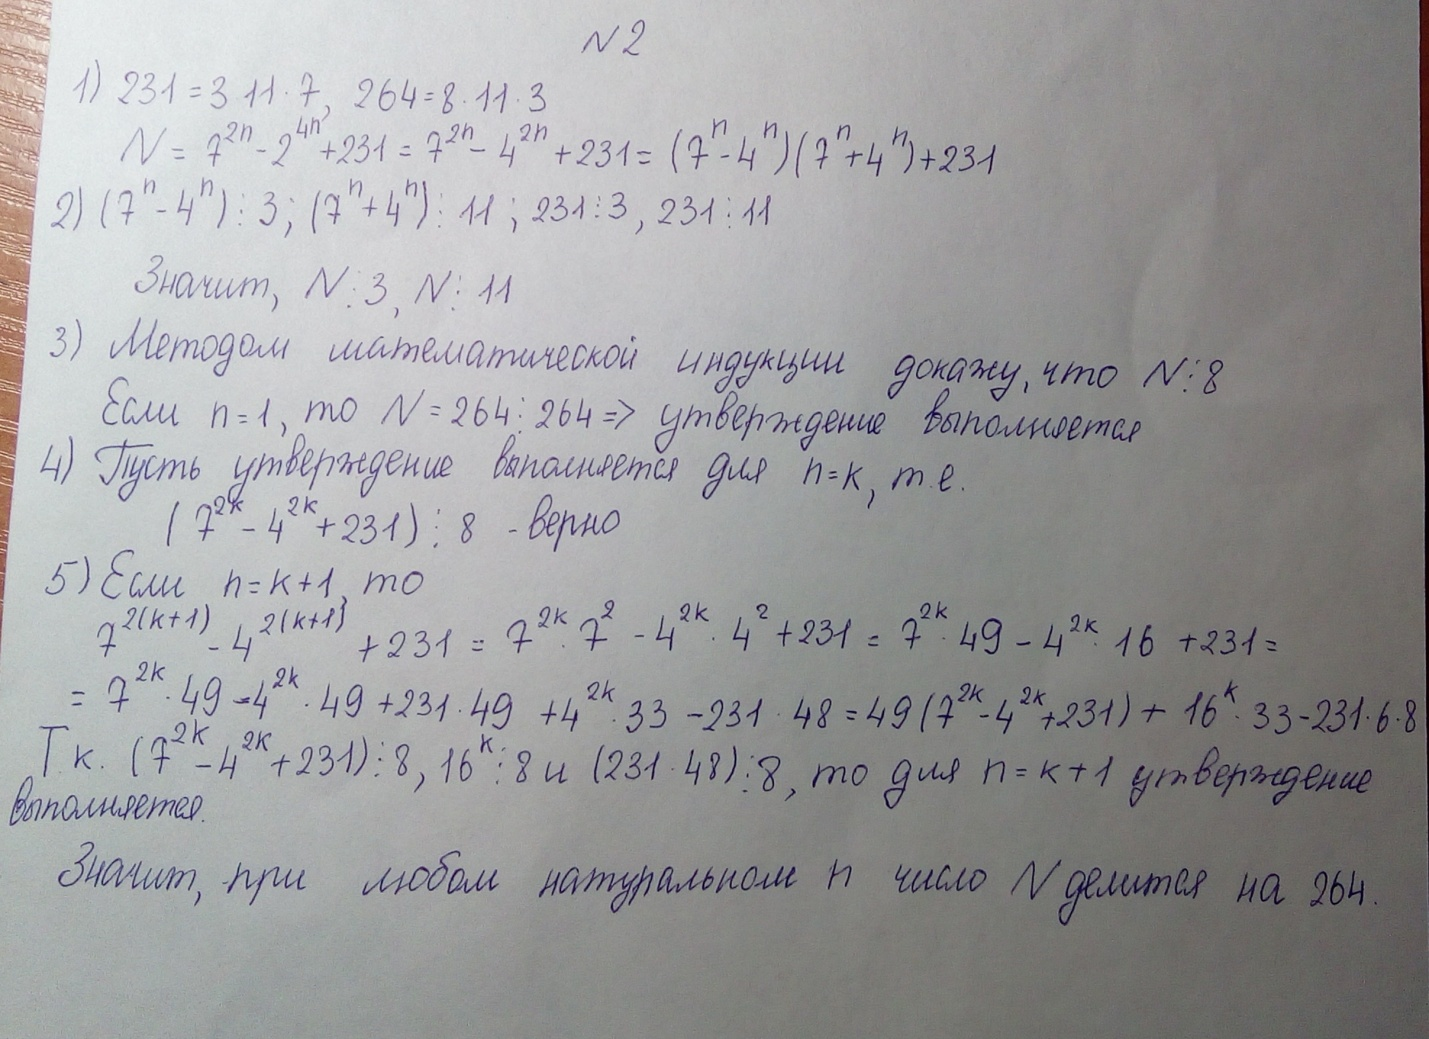 N2
1) 231 = 3·11·7, 264 = 8·11·3
N = 7^{2n} - 2^{4n} + 231 = 7^{2n} - 4^{2n} + 231 = (7^n - 4^n)(7^n + 4^n) + 231
2) (7^n - 4^n) ⋮ 3; (7^n + 4^n) ⋮ 11; 231 ⋮ 3, 231 ⋮ 11
Значит, N ⋮ 3, N ⋮ 11
3) Методом математической индукции докажу, что N ⋮ 8
Если n = 1, то N = 264 ⋮ 264 => утверждение выполняется
4) Пусть утверждение выполняется для n = k, т.е.
(7^{2k} - 4^{2k} + 231) ⋮ 8 - верно
5) Если n = k+1, то
7^{2(k+1)} - 4^{2(k+1)} + 231 = 7^{2k}·7^2 - 4^{2k}·4^2 + 231 = 7^{2k}·49 - 4^{2k}·16 + 231 =
= 7^{2k}·49 - 4^{2k}·49 + 231·49 + 4^{2k}·33 - 231·48 = 49(7^{2k} - 4^{2k} + 231) + 16^k·33 - 231·6·8
Т.к. (7^{2k} - 4^{2k} + 231) ⋮ 8, 16^k ⋮ 8 и (231·48) ⋮ 8, то для n = k+1 утверждение
выполняется.
Значит, при любом натуральном n число N делится на 264.